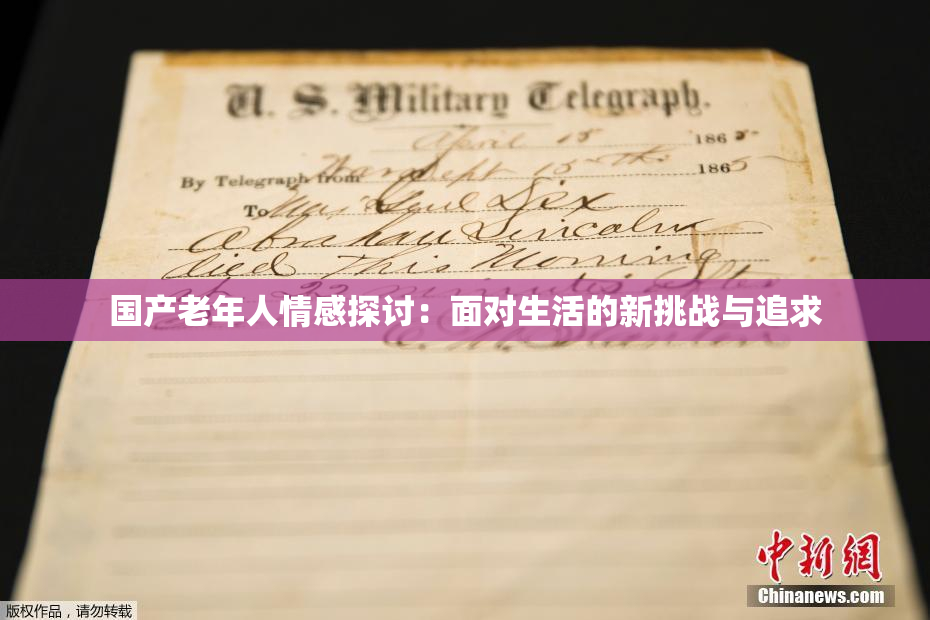 U. S. Military Telegraph.
April 15 1865
By Telegraph from War Dept 15th 1865
To Maj Genl Dix
Abraham Lincoln
died This Morning
at 22 minutes after
国产老年人情感探讨：面对生活的新挑战与追求
E. M. Stanton
中新网
Chinanews.com
版权作品，请勿转载